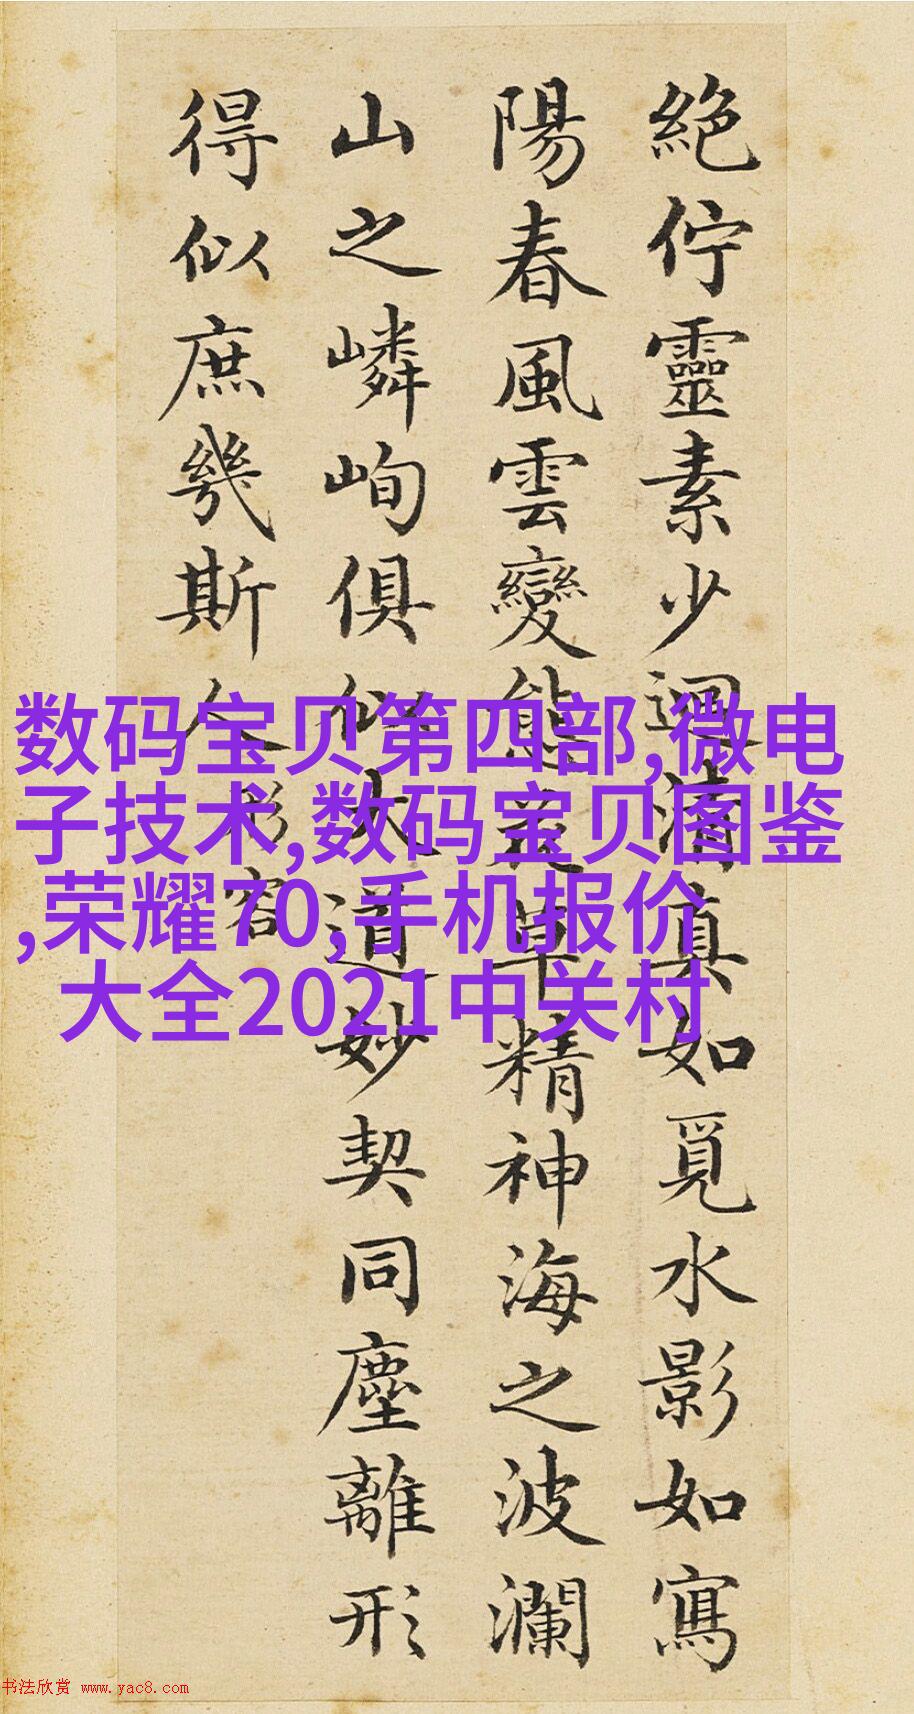 絶佇靈素少迴清真如覓水影如寫
陽春風雲變態草精神海之波瀾
山之嶙峋俱似大道妙契同塵離形
得似庶幾斯人
形容
数码宝贝第四部,微电
子技术,数码宝贝图鉴
,荣耀70,手机报价
大全2021中关村
书法欣赏 www.yac8.com